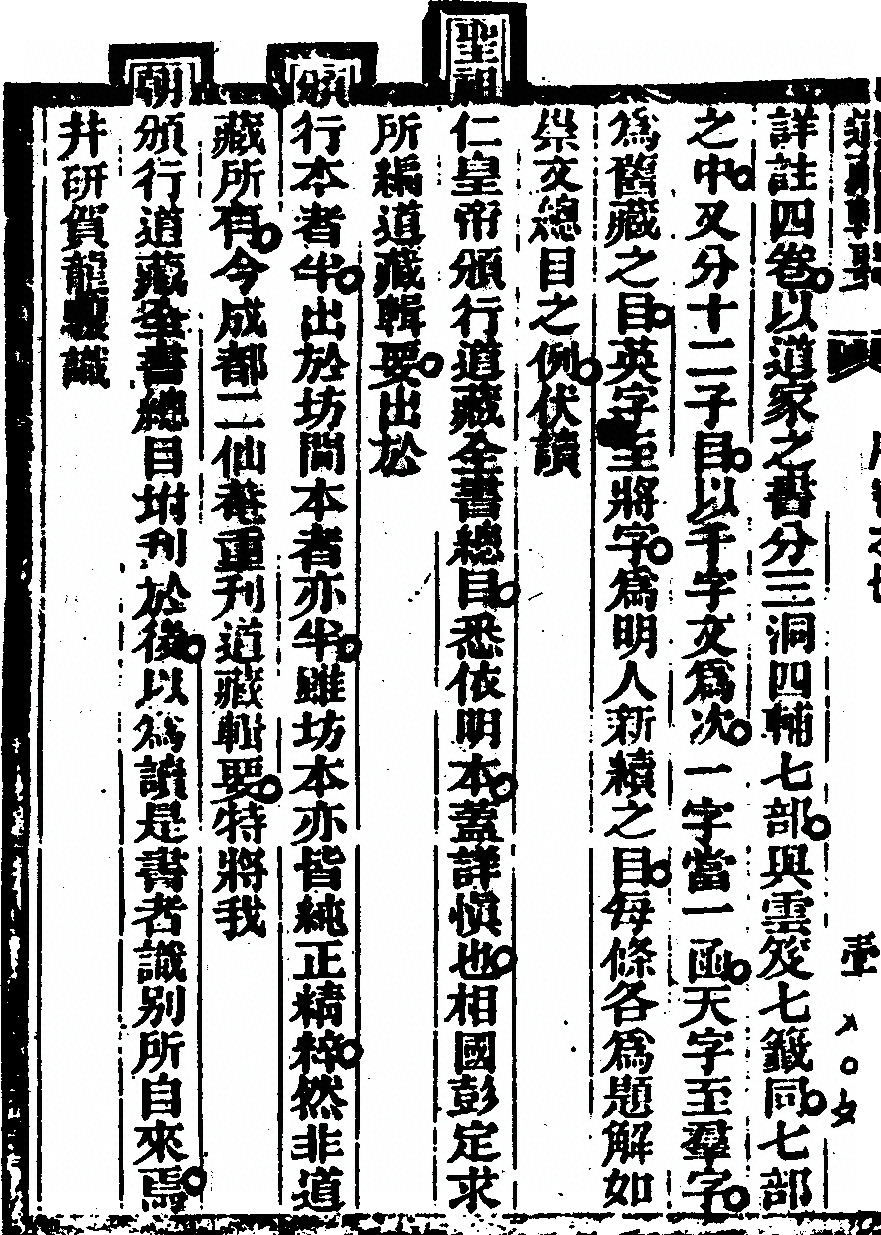 詳註四卷以道家之書分三洞四輔七部與雲笈七籤同七部
之中又分十二子目以千字文爲次一字當一函天字至羣字
爲舊藏之目英字至將字爲明人新續之目每條各爲題解如
崇文總目之例伏讀
聖祖仁皇帝頒行道藏全書總目悉依明本蓋詳愼也相國彭定求
所編道藏輯要出於
頒行本者半出於坊間本者亦半雖坊本亦皆純正精粹然非道
藏所有今成都二仙菴重刊道藏輯要特將我
朝頒行道藏全書總目坿刊於後以爲讀是書者識别所自來焉
井研賀龍驤識